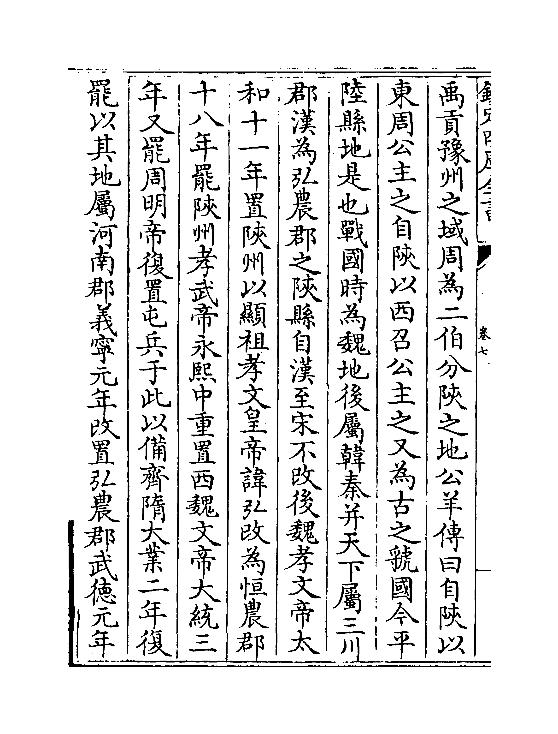 欽定四庫全書
卷七
禹貢豫州之域周為二伯分陜之地公羊傳曰自陜以
東周公主之自陜以西召公主之又為古之虢國今平
陸縣地是也戰國時為魏地後屬韓秦并天下屬三川
郡漢為弘農郡之陜縣自漢至宋不改後魏孝文帝太
和十一年置陜州以顯祖孝文皇帝諱弘改為恒農郡
十八年罷陜州孝武帝永熙中重置西魏文帝大統三
年又罷周明帝復置屯兵于此以備齊隋大業二年復
罷以其地屬河南郡義寧元年改置弘農郡武德元年